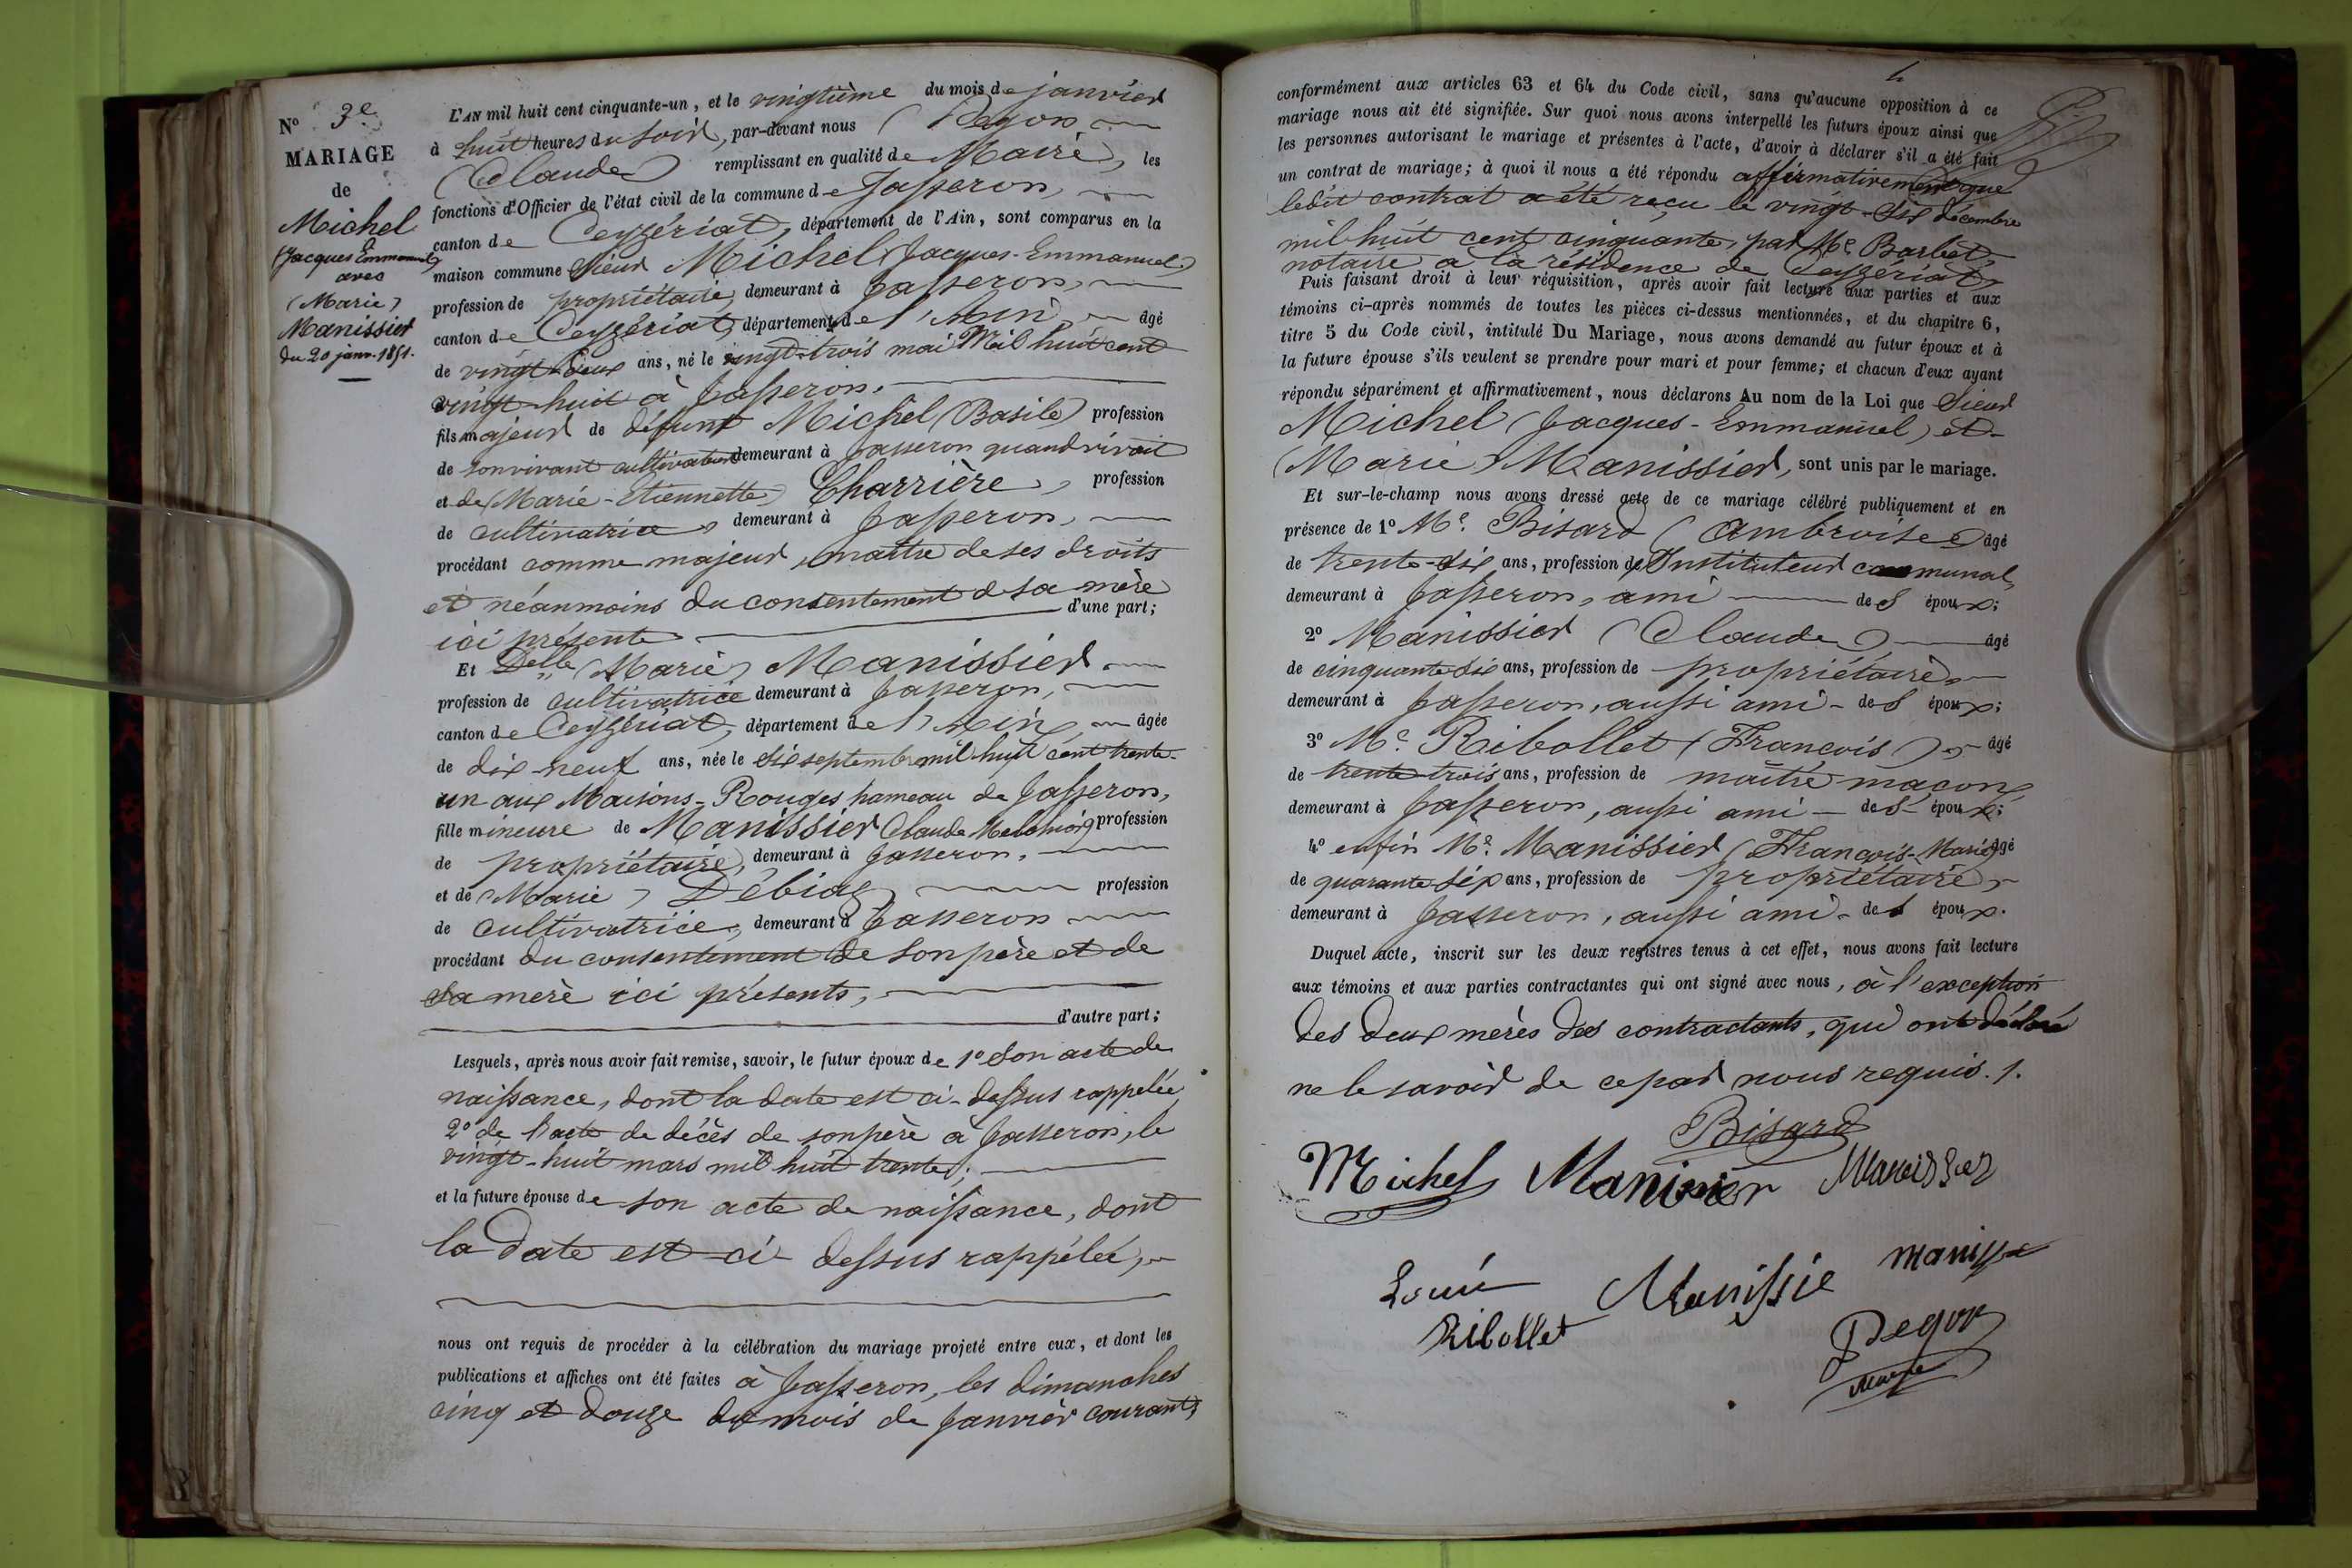 N° 3e
MARIAGE
de
Michel
(Jacques Emmanuel)
avec
(Marie)
Manissier
du 20 janv. 1851.
L'AN mil huit cent cinquante-un, et le vingtième du mois de janvier
à huit heures du soir, par-devant nous
(Claude) remplissant en qualité de Maire, les
fonctions d'Officier de l'état civil de la commune de Jasseron,
canton de Ceyzériat, département de l'Ain, sont comparus en la
maison commune Sieur Michel (Jacques-Emmanuel)
profession de propriétaire, demeurant à Jasseron,
canton de Ceyzériat, département de l'Ain, âgé
de vingt-deux ans, né le vingt-trois mai Mil huit cent
vingt-huit à Jasseron.
fils majeur de défunt Michel (Basile) profession
de son vivant cultivateur demeurant à Jasseron quand vivait
et de (Marie-Etiennette) Charrière, profession
de cultivatrice, demeurant à Jasseron,
procédant comme majeur, maître de ses droits
et néanmoins du consentement d sa mère
d'une part;
ici présente
Et Delle (Marie) Manissier
profession de cultivatrice demeurant à Jasseron,
canton de Ceyzériat, département de l'Ain, âgée
de dix-neuf ans, née le six septembre mil huit cent trente-
un aux Maisons-Rouges hameau de Jasseron,
fille mineure de Manissier Claude profession
de propriétaire, demeurant à Jasseron,
et de (Marie) Débiaz profession
de cultivatrice, demeurant à Jasseron
procédant du consentement de son père et de
sa mère ici présents,
d'autre part;
Lesquels, après nous avoir fait remise, savoir, le futur époux de 1° Son acte de
naissance, dont la date est ci-dessus rappelée,
2° de l'acte de décès de son père à Jasseron, le
vingt-huit mars mil huit trente;
et la future épouse de son acte de naissance, dont
la date est ci-dessus rappelée,
nous ont requis de procéder à la célébration du mariage projeté entre eux, et dont les
publications et affiches ont été faites à Jasseron, les dimanches
cinq et douze du mois de Janvier courant,
conformément aux articles 63 et 64 du Code civil, sans qu'aucune opposition à ce
mariage nous ait été signifiée. Sur quoi nous avons interpellé les futurs époux ainsi que
les personnes autorisant le mariage et présentes à l'acte, d'avoir à déclarer s'il a été fait
un contrat de mariage; à quoi il nous a été répondu affirmativement que
ledit contrat a été reçu le vingt-six décembre
mil huit cent cinquante, par Me. Barbet,
notaire à la résidence de Ceyzériat,
Puis faisant droit à leur réquisition, après avoir fait lecture aux parties et aux
témoins ci-après nommés de toutes les pièces ci-dessus mentionnées, et du chapitre 6,
titre 5 du Code civil, intitulé Du Mariage, nous avons demandé au futur époux et à
la future épouse s'ils veulent se prendre pour mari et pour femme; et chacun d'eux ayant
répondu séparément et affirmativement, nous déclarons Au nom de la Loi que Sieur
Michel (Jacques-Emmanuel) et
(Marie) Manissier, sont unis par le mariage.
Et sur-le-champ nous avons dressé acte de ce mariage célébré publiquement et en
présence de 1° Mr. Bisard (Ambroise) âgé
de trente-six ans, profession de Instituteur communal,
demeurant à Jasseron, ami des époux;
2° Manissier (Claude), âgé
de cinquante-six ans, profession de propriétaire,
demeurant à Jasseron, aussi ami des époux;
3° Mr. Ribollet (François), âgé
de trente-trois ans, profession de maître maçon,
demeurant à Jasseron, aussi ami des époux;
4° enfin Mr. Manissier (François-Marie) âgé
de quarante-six ans, profession de propriétaire,
demeurant à Jasseron, aussi ami des époux.
Duquel acte, inscrit sur les deux registres tenus à cet effet, nous avons fait lecture
aux témoins et aux parties contractantes qui ont signé avec nous, à l'exception
des deux mères des contractants, qui ont déclaré
ne le savoir de ce par nous requis. /.
Bisard
Michel Manissier Manissier
Manissie
Ribollet
Maire